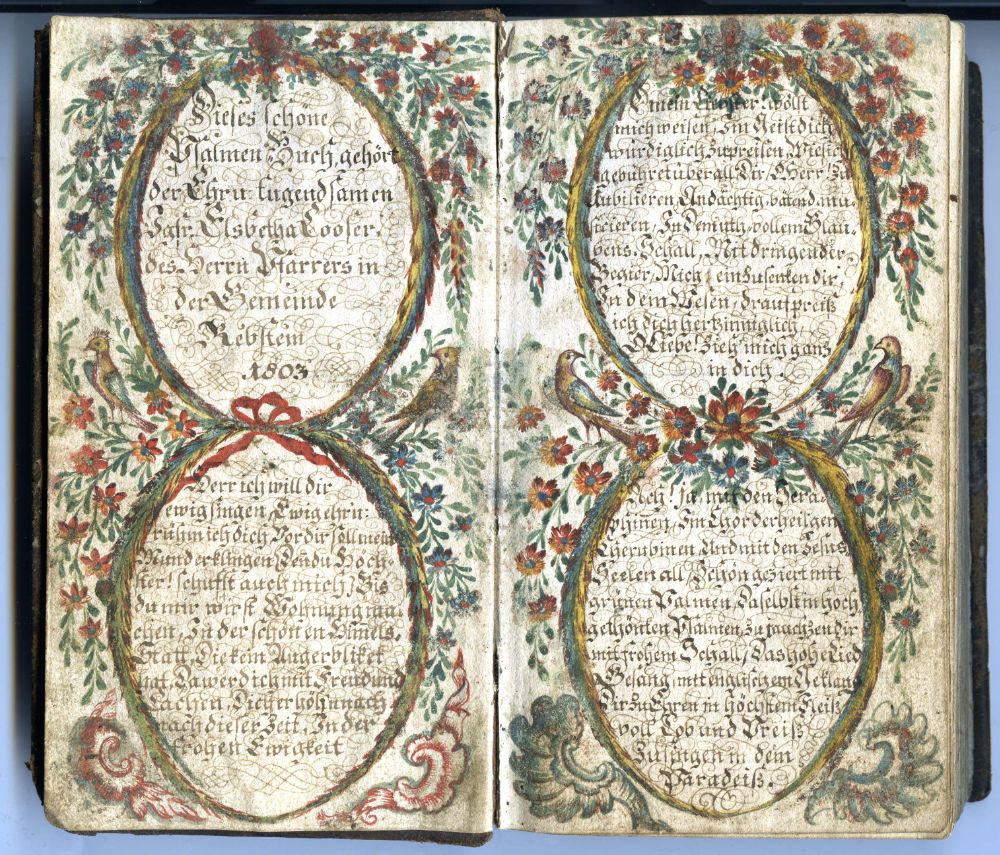 Dieses schöne
Psalmen Buch, gehört
der Ehru: tugendsamen
Jgfr. Elsbetha Cooser.
des Herrn Pfarrers in
der Gemeinde
Rebstein
1803
Herr ich will dir
ewig singen, Ewig ehru:
rühm ich dich Vor dir soll mein
Mund erklingen Den du Höch-
ster! schufst auch mich, Bis
du mir wirst Wohnung ma-
chen, In der schönen Himels,
Statt, Die kein Aug erbliket
hat, Da werd ich mit Freud und
Lachen, Dich erhöhn nach
nach dieser Zeit, In der
frohen Ewigkeit
O mein Liebster! wollst
mich weisen, Im Geist dich
würdiglich zu preisen, Wie sichs
gebühret überall Dir, O Herr! zu
Jubilieren Andächtig, bätend, mu-
sicieren, In Demuth, vollem Glau-
bens, Schall, Mit dringender
Begier, Mich einzusenken dir,
In dem Wesen, drauf preiß
ich dich hertzinniglich,
O Liebe! Zieh mich ganz
in dich.
Ach! ja, mit den Sera-
phinen, Im Chor der heilgen
Cherubinen Und mit den
Seelen all, Schön geziert mit
grünen Palmen, Daselbst in hoch
gethönten Psalmen, zu jauchzen dir
mit frohem Schall, Das hohe Lied
Gesang, mit englischem
Dir zu Ehren in höchstem Fleiß
voll Lob und Preiß
Zu singen in dem
Paradeiß.